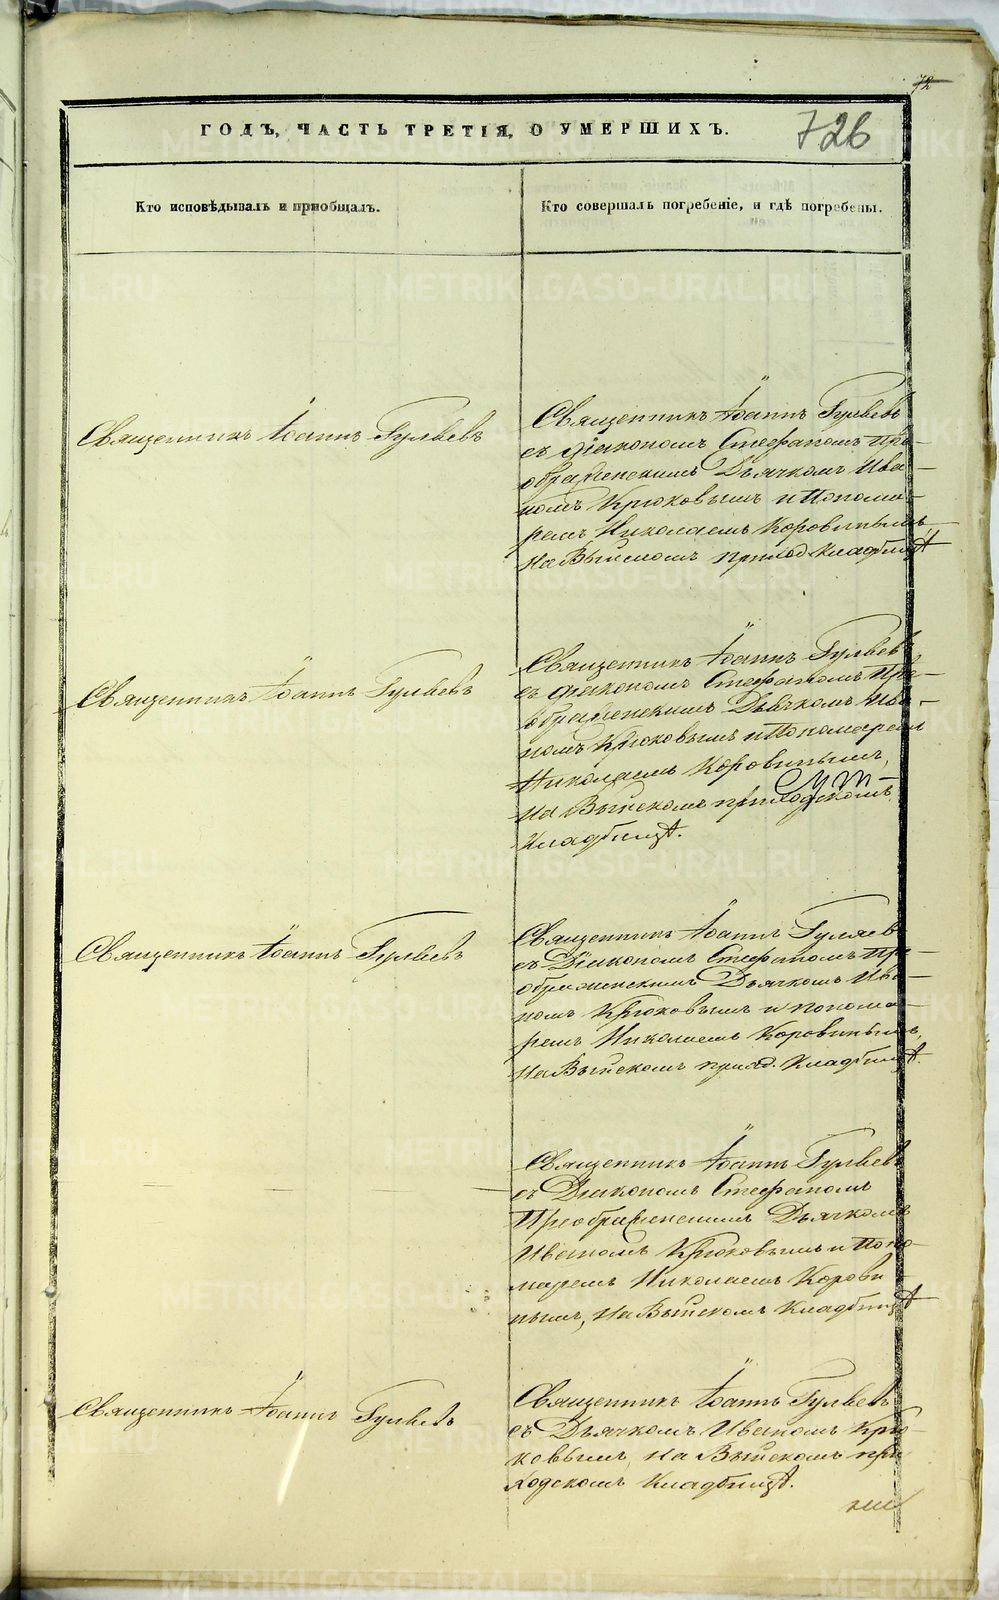 72
ГОДЪ, ЧАСТЬ ТРЕТІЯ, О УМЕРШИХЪ.
726
Кто исповѣдывалъ и пріобщалъ.
Кто совершалъ погребеніе, и гдѣ погребены.
Священникъ Іоаннъ Гуляевъ
Священникъ Іоаннъ Гуляевъ
съ діакономъ Стефаномъ Пре-
ображенскимъ Дьячкомъ Ива-
номъ Крюковымъ и Понома-
ремъ Николаемъ Коровинымъ,
На Выйскомъ приход. кладбищѣ
Священникъ Іоаннъ Гуляевъ
Священникъ Іоаннъ Гуляевъ
съ діакономъ Стефаномъ Пре-
ображенскимъ Дьячкомъ Ива-
номъ Крюковымъ и Пономаремъ
Николаемъ Коровинымъ,
На Выйскомъ приходскомъ
Кладбищѣ.
Священникъ Іоаннъ Гуляевъ
Священникъ Іоаннъ Гуляевъ
съ Діакономъ Стефаномъ Пре-
ображенскимъ Дьячкомъ Ива-
номъ Крюковымъ и понома-
ремъ Николаемъ Коровинымъ,
На Выйскомъ приход. Кладбищѣ.
Священникъ Іоаннъ Гуляевъ
съ Діакономъ Стефаномъ
Преображенскимъ Дьячкомъ
Иваномъ Крюковымъ и Поно-
маремъ Николаемъ Корови-
нымъ, На Выйскомъ Кладбищѣ
Священникъ Іоаннъ Гуляевъ
Священникъ Іоаннъ Гуляевъ
съ Дьячкомъ Иваномъ Крю-
ковымъ, на Выйскомъ при-
ходскомъ Кладбищѣ.
METRIKI.GASO-URAL.RU